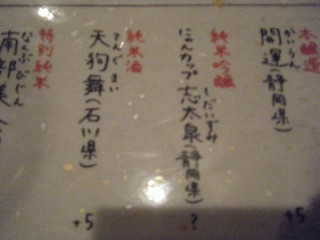 本醸造
かいうん
開運(静岡県)
+5
純米吟醸
しだいずみ
にゃんカップ 志太泉(静岡県)
?
純米酒
てんぐまい
天狗舞(石川県)
+5
特別純米
なんぶびじん
南部美